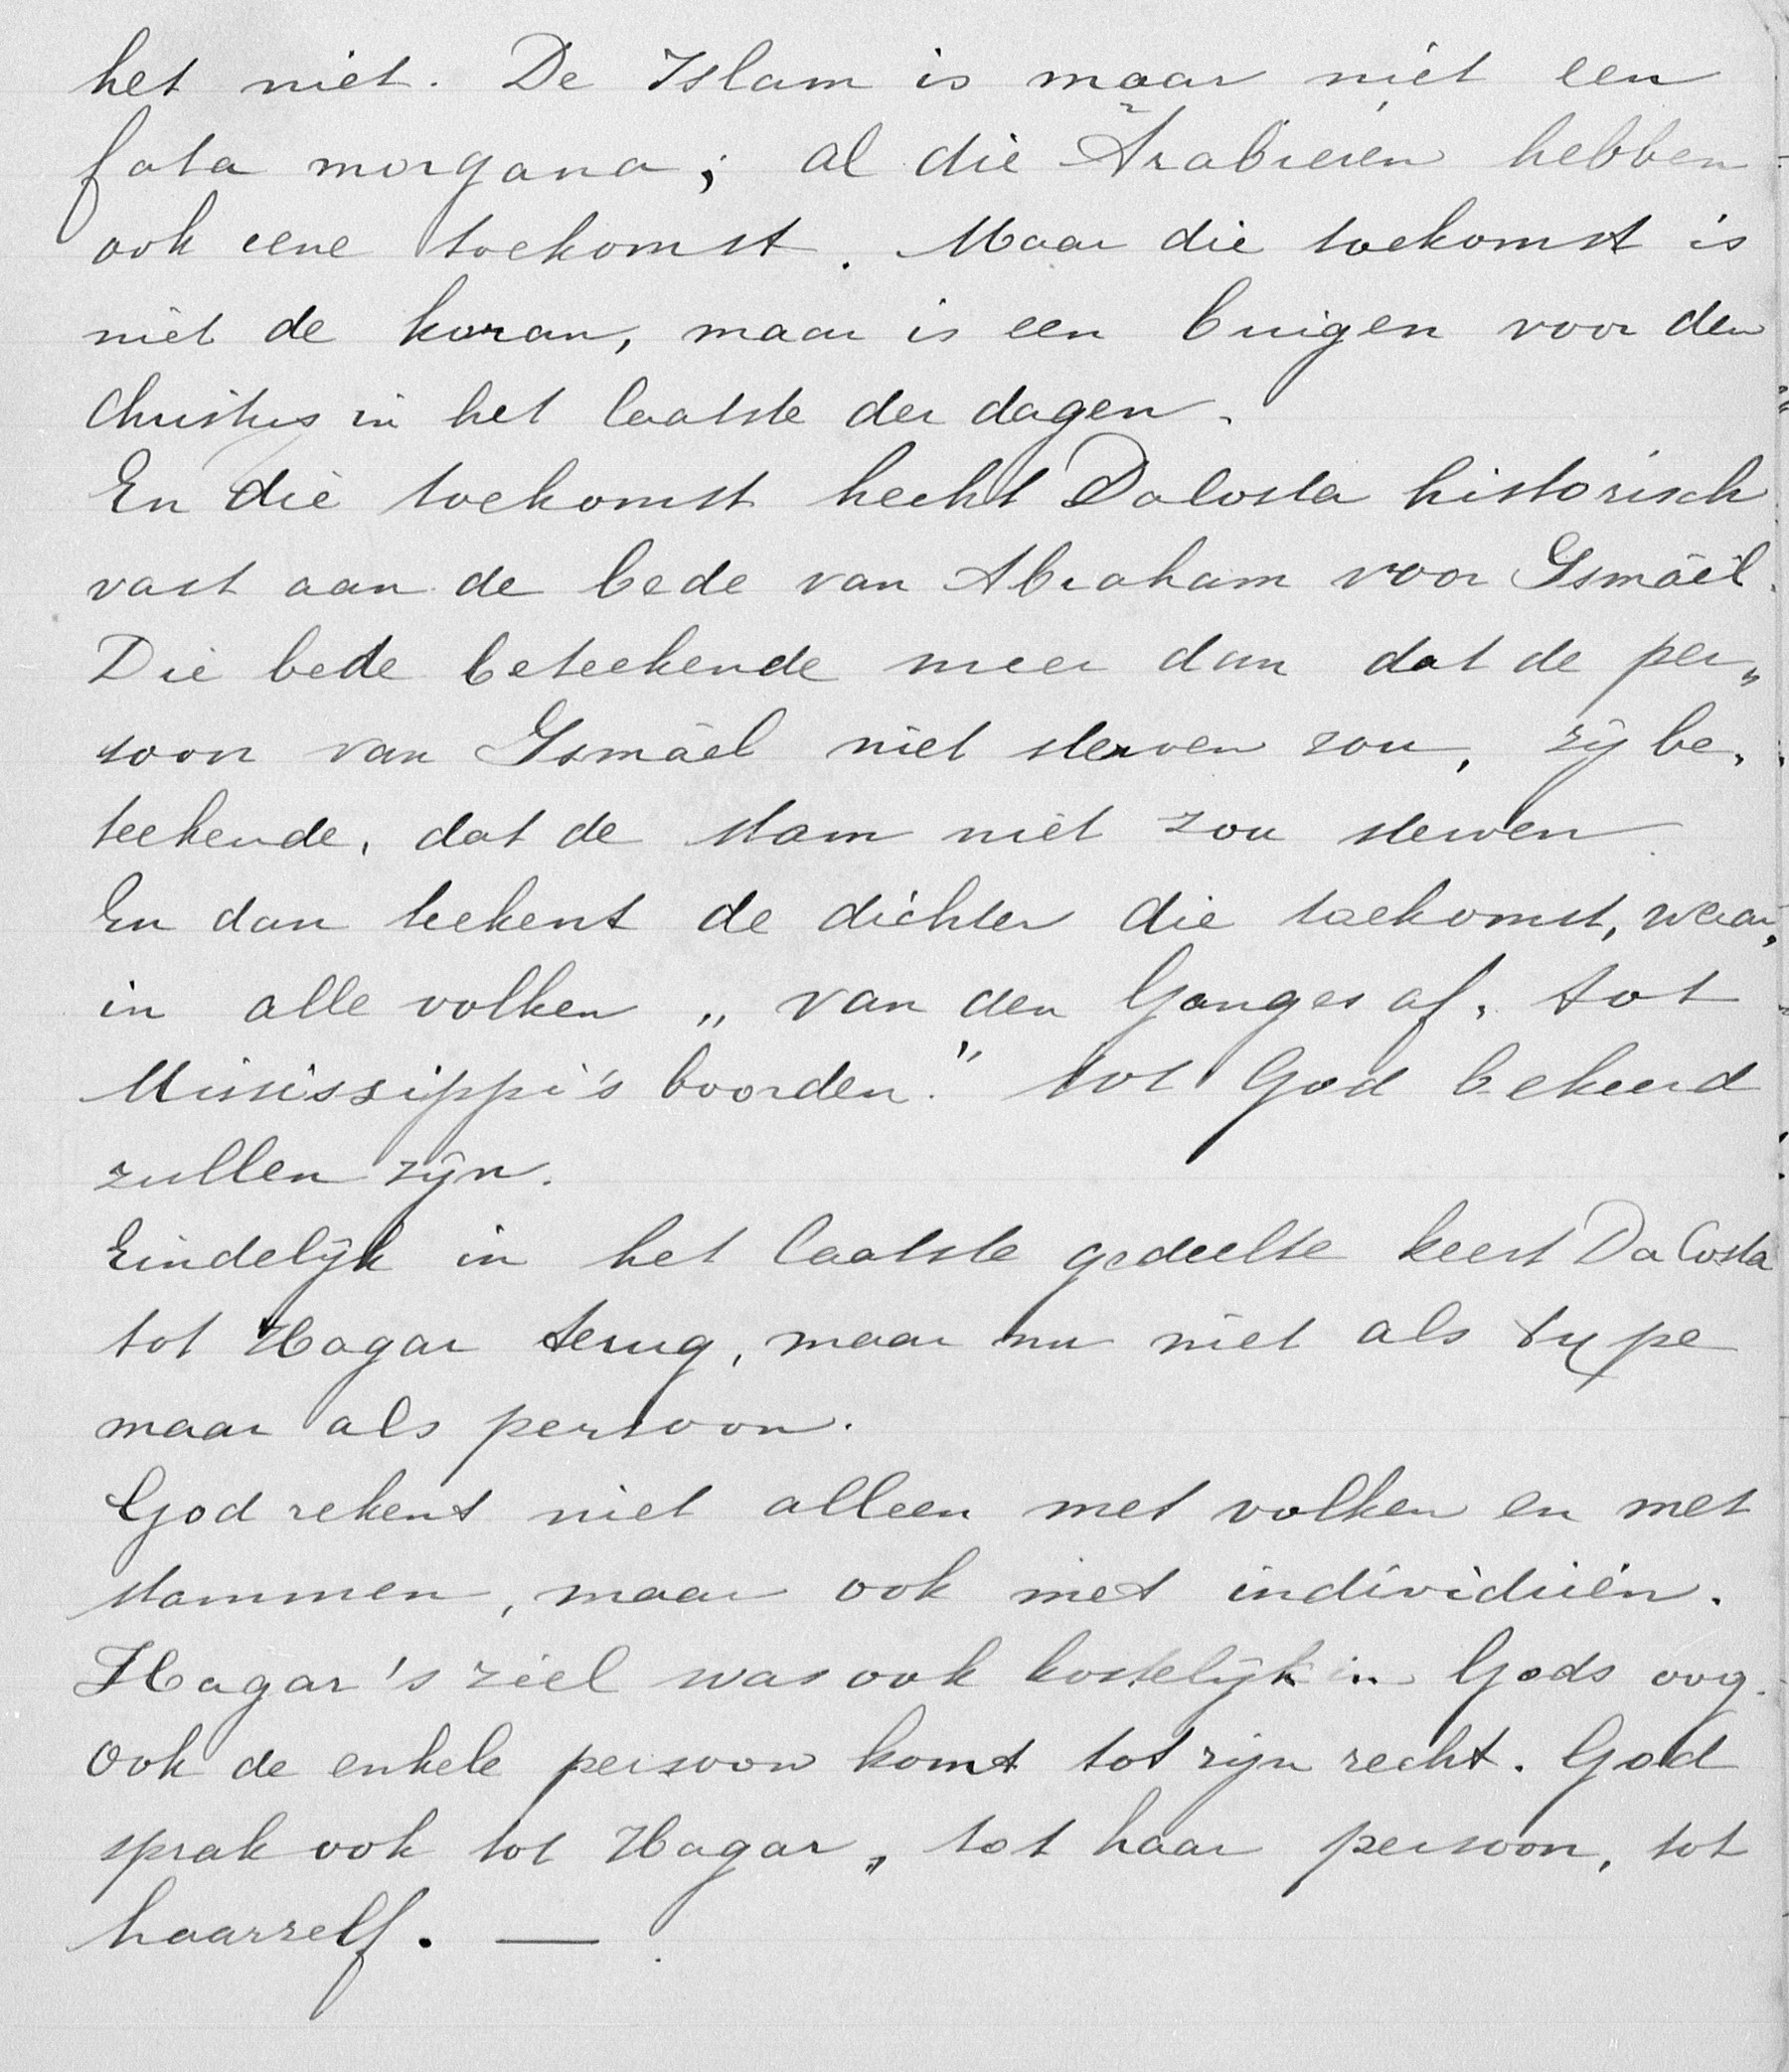 het niet. De Islam is maar niet een
fata morgana; al die Arabieren hebben
ook eene toekomst. Maar die toekomst is
niet de koran, maar is een buigen voor den
Christus in het laatste der dagen.
En die toekomst hecht DaCosta historisch
vast aan de bede van Abraham voor Ismaël.
Die bede beteekende meer dan dat de per„
soon van Ismaël niet sterven zou, zij be„
teekende, dat de stam niet zou sterven
En dan teekent de dichter die toekomst, waar„
in alle volken „van den Ganges af, tot
Mississippi's boorden." tot God bekeerd
zullen zijn.
Eindelijk in het laatste gedeelte keert Da Costa
tot Hagar terug, maar nu niet als type
maar als persoon.
God rekent niet alleen met volken en met
stammen, maar ook met individuën.
Hagar's ziel was ook kostelijk in Gods oog.
Ook de enkele persoon komt tot zijn recht. God
sprak ook tot Hagar, tot haar persoon, tot
haarzelf. —